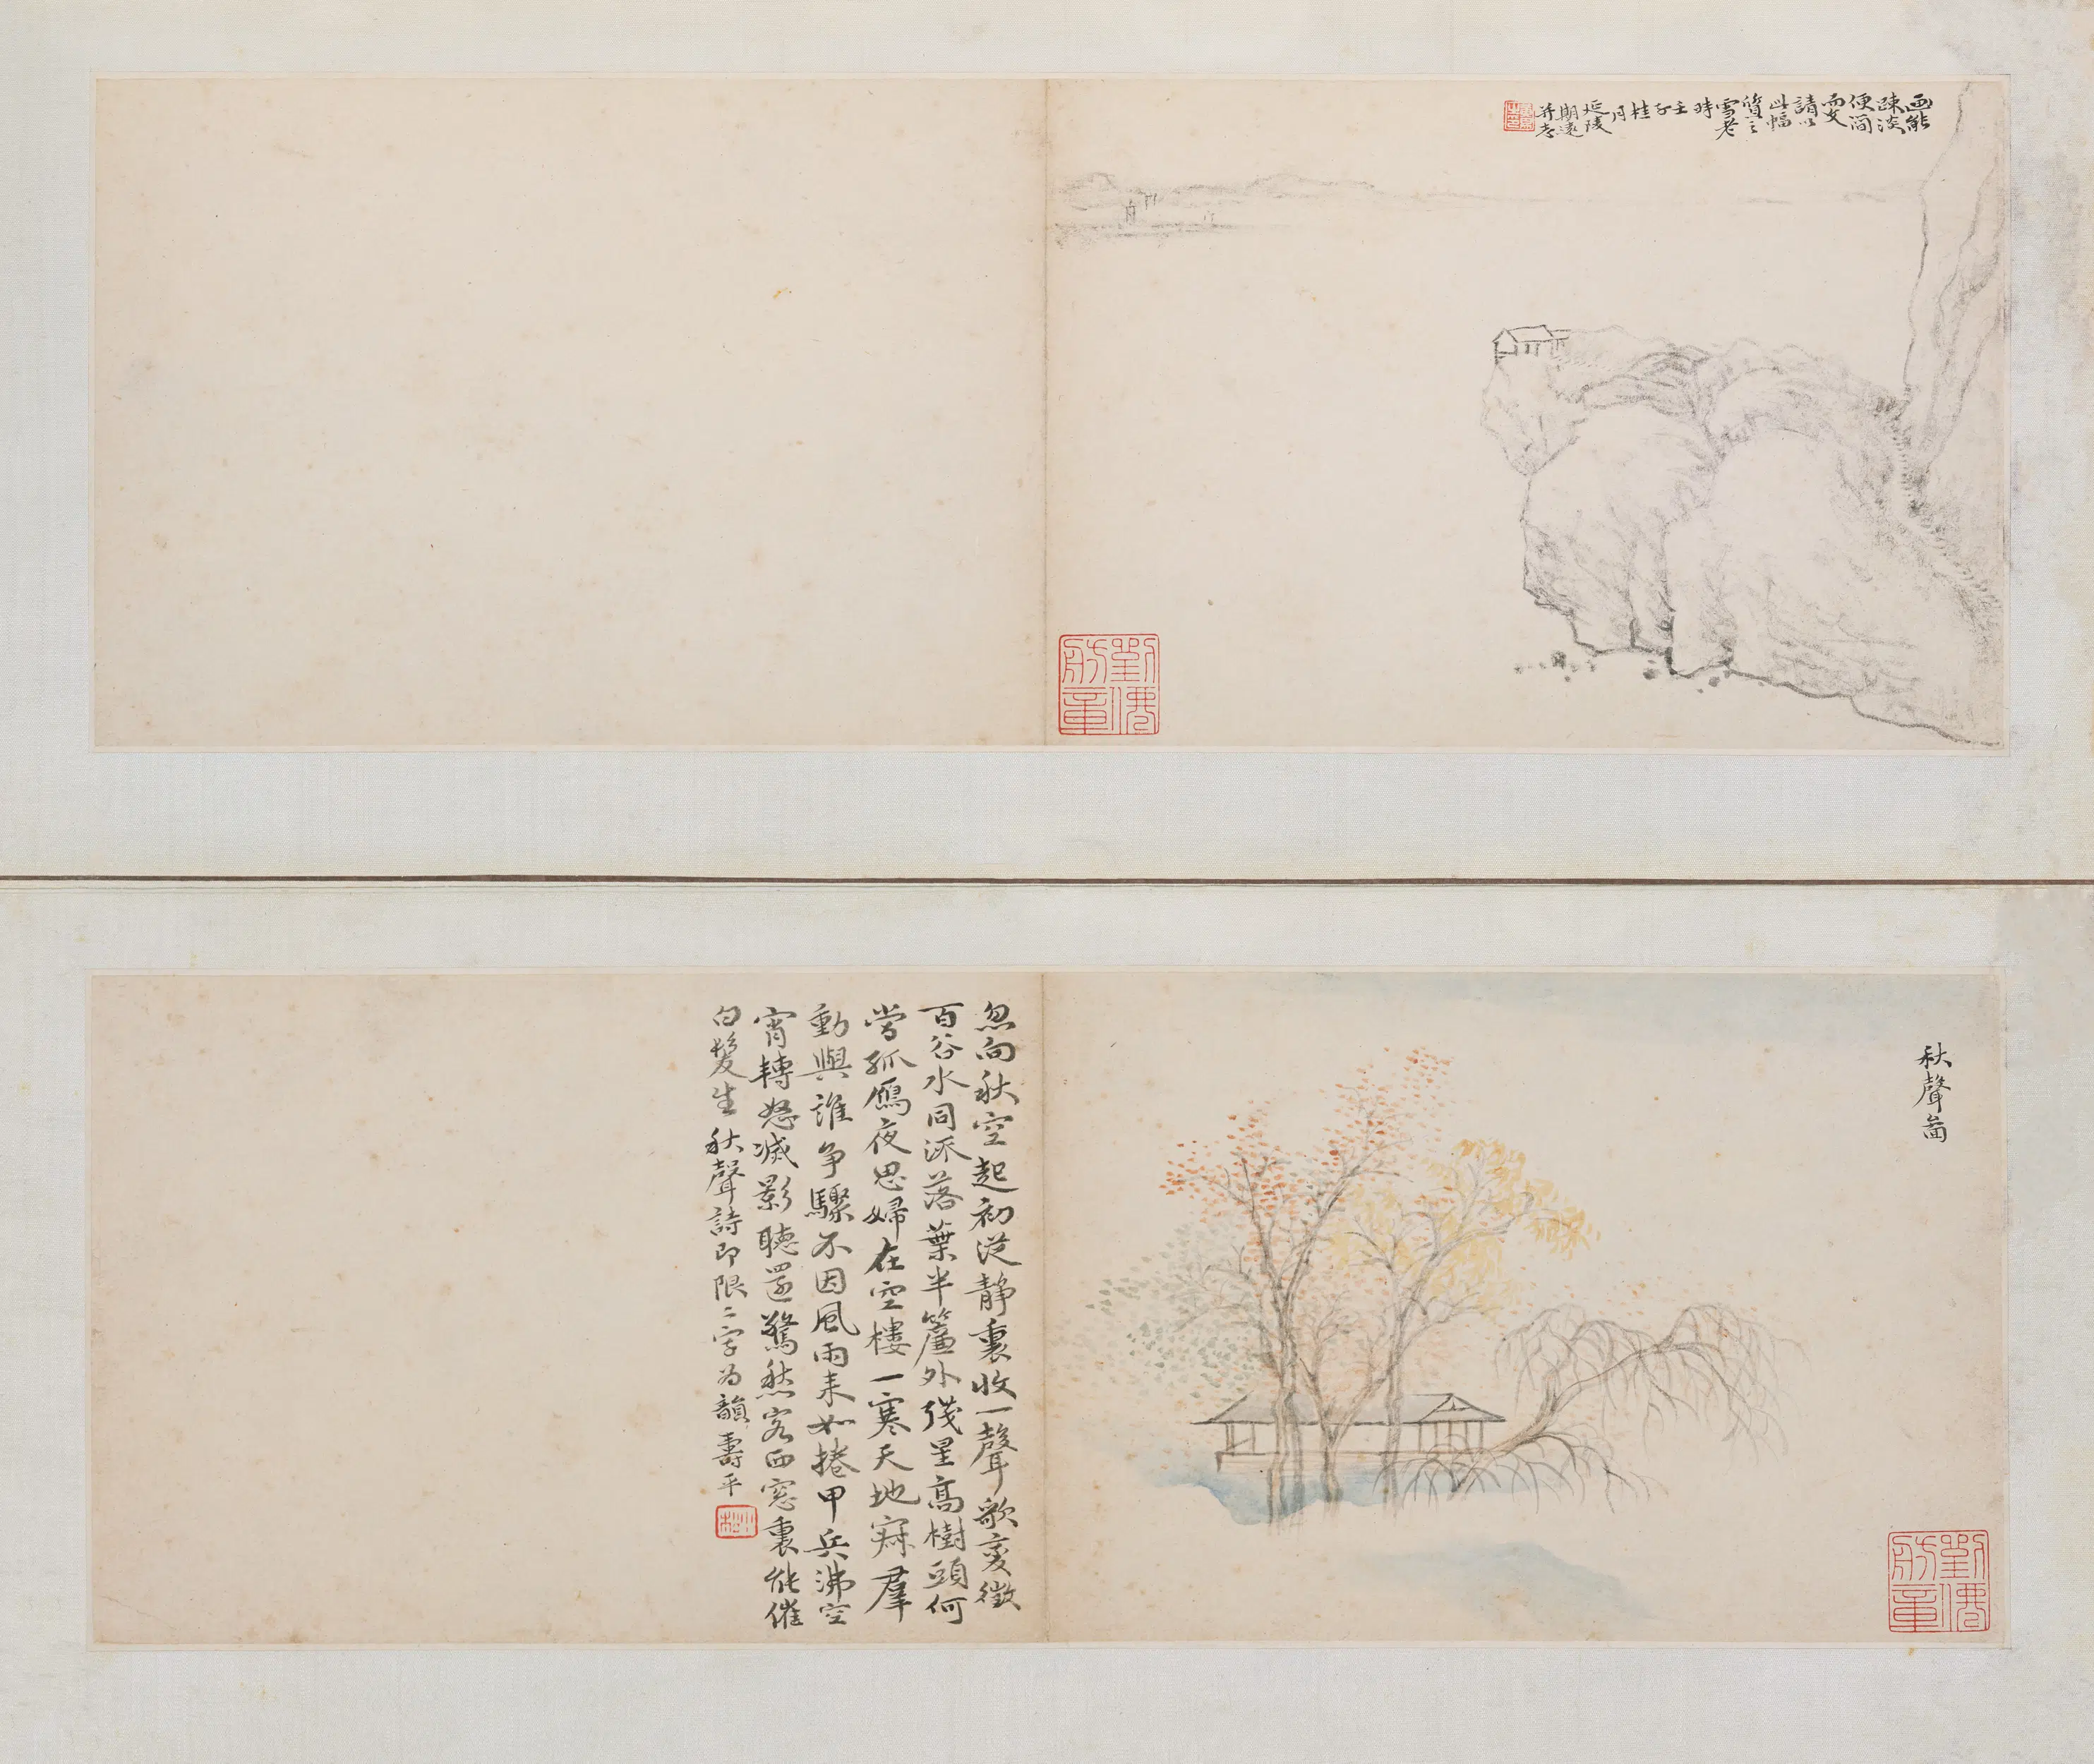 画能
疎淡
便簡
而文
請以
此幅
質之
雪老
時
壬
子
桂
月
延陵
期遠
并志
劉傳
舫章
秋聲啚
劉傳
舫章
忽向秋空起初從静裏收一聲歌變徵
百谷水同派落葉半簾外殘星高樹頭何
當孤鴈夜思婦在空樓一寒天地寂羣
動與誰爭驟不因風雨来如捲甲兵沸空
宵轉怒滅影聴還驚愁客西窓裏能催
白髮生 秋聲詩即限二字为韻 壽平